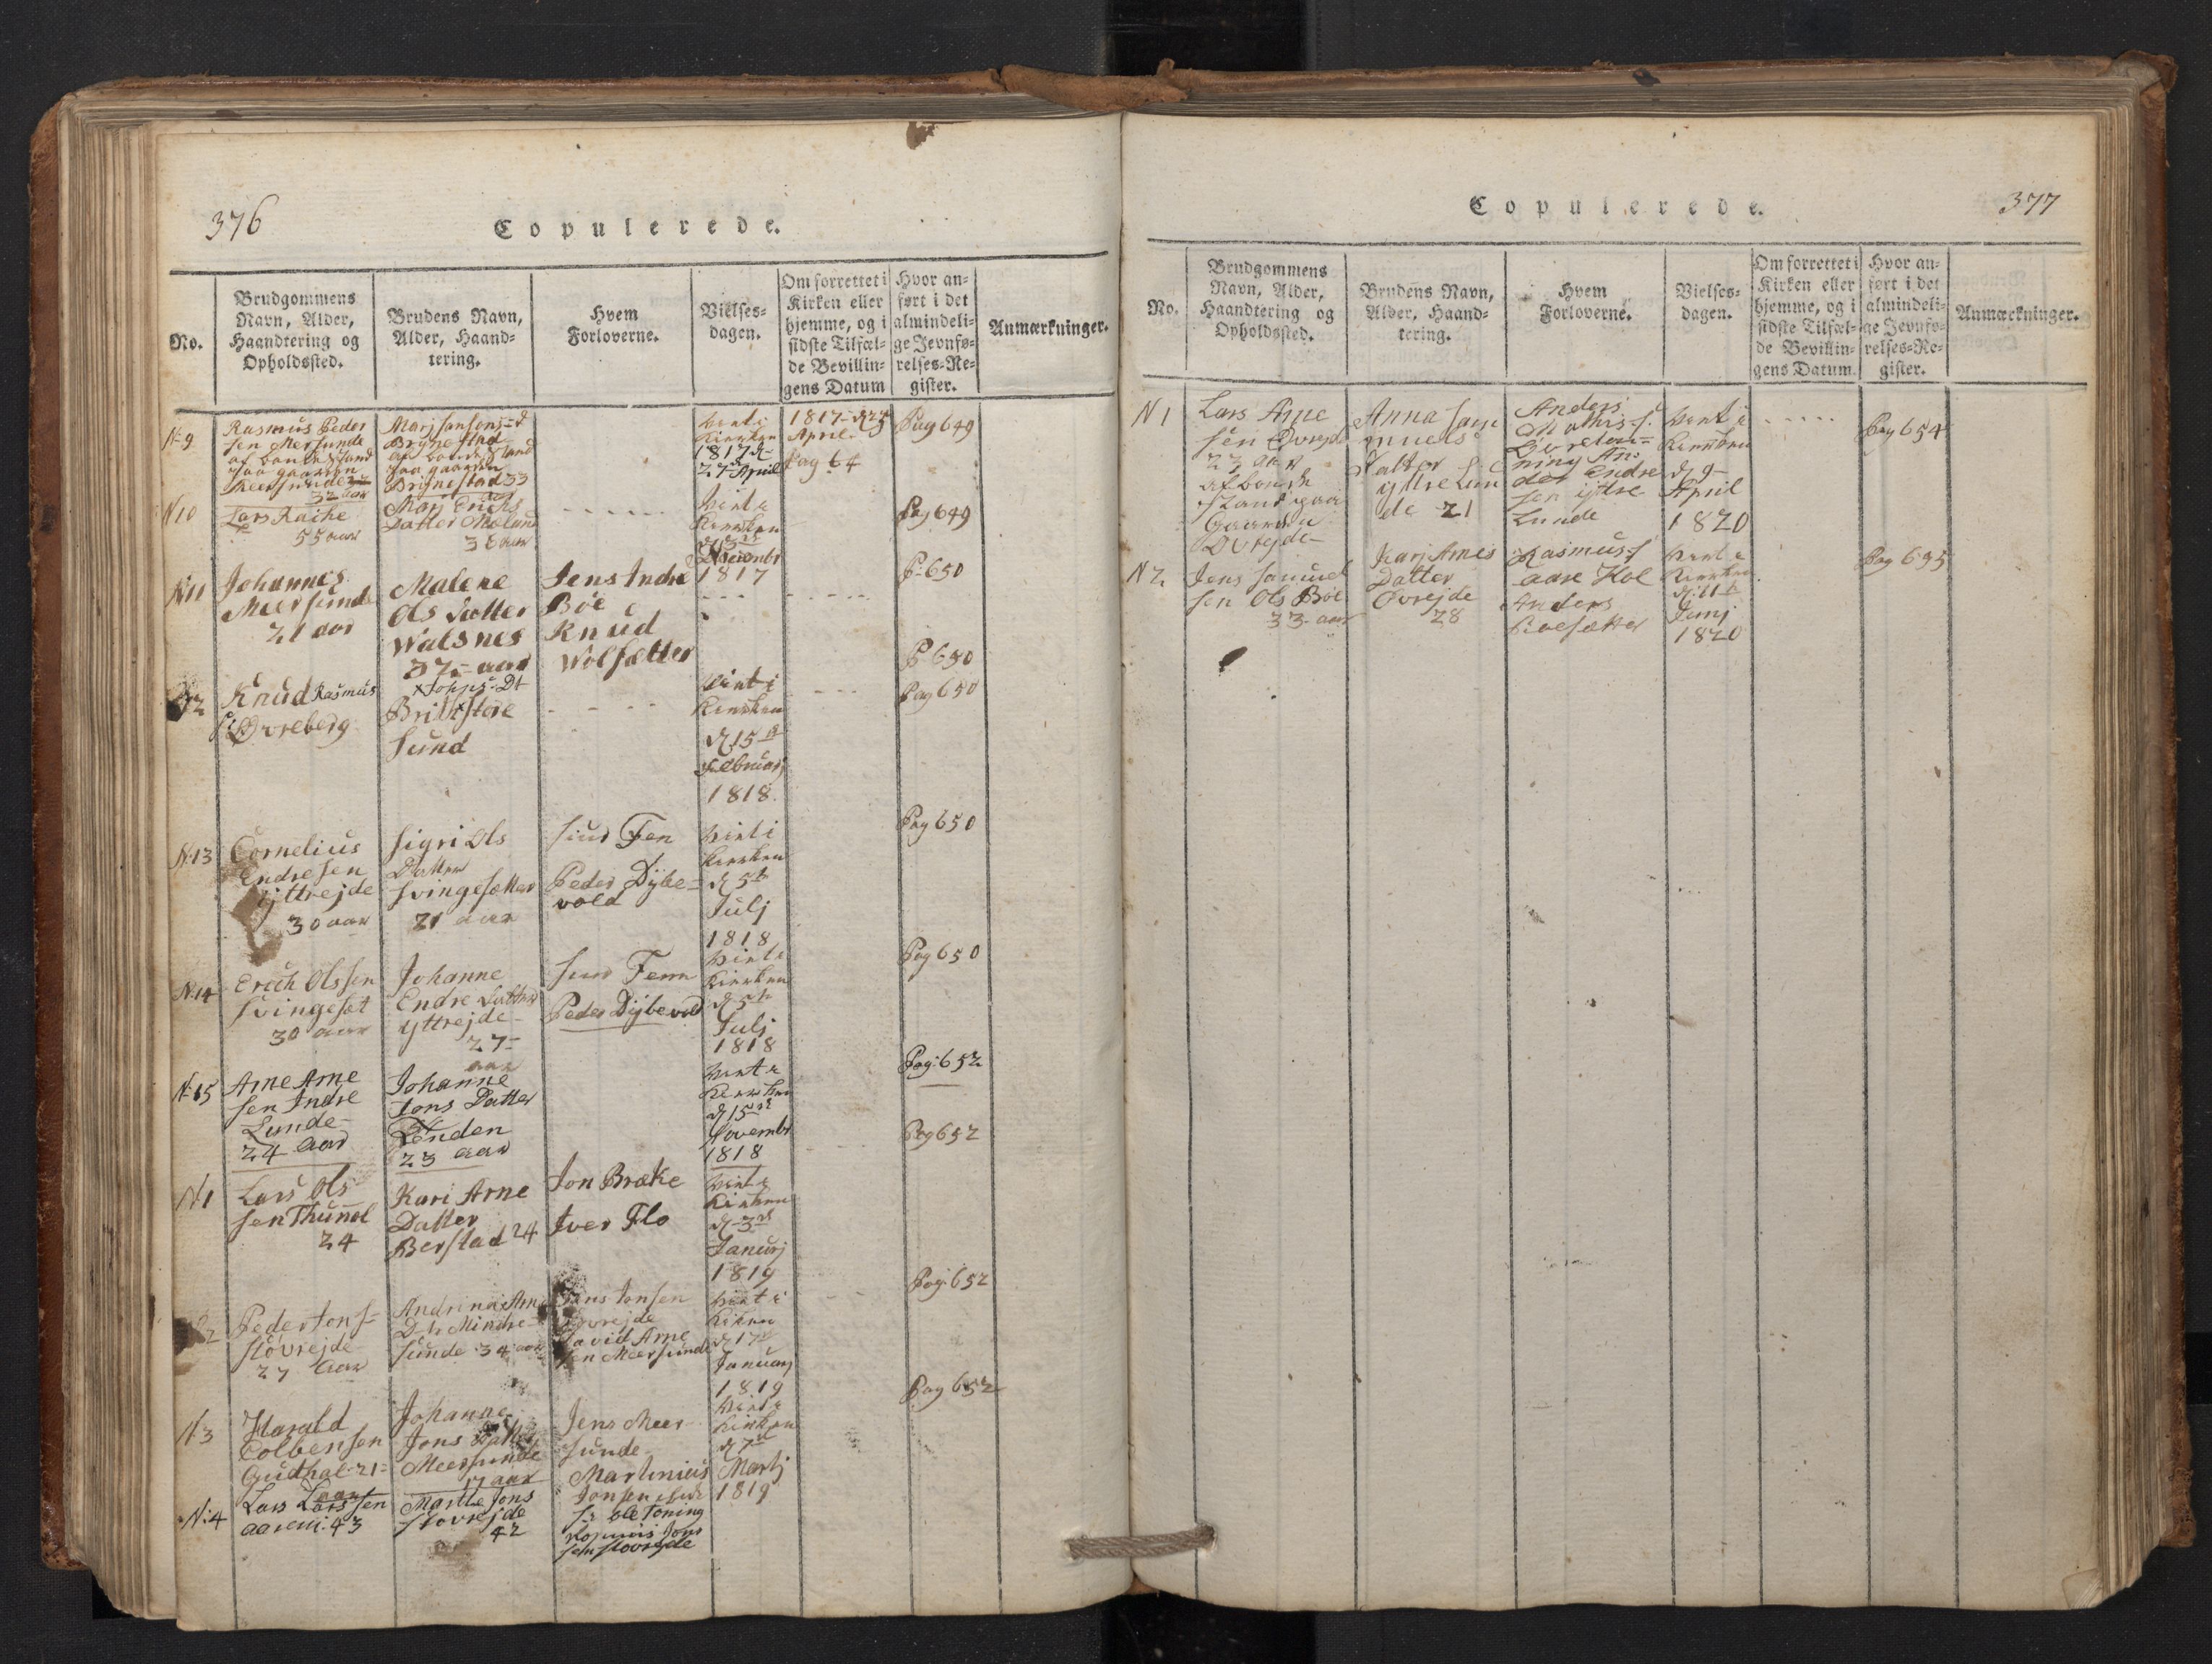 376
Copulerede.
No.
Brudgommens
Navn, Alder,
Haandtering og
Opholdssted.
Brudens Navn,
Alder, Haand-
tering.
Hvem
Forloverne.
Vielses-
dagen.
Om forrettet i
Kirken eller
hjemme, og i
sidste Tilfæl-
de Bevillin-
gens Datum
Hvor an-
ført i det
almindeli-
ge Jevnfø-
relses-Re-
gister.
Anmærkninger.
N 9
Rasmus Peder
sen Mersunde
af bonde Stand
paa gaarden
Meersunde
32 aar
Bryne stad
af bonde Stand
paa gaarden
Brynestad 33
viet i
Kierken
1817 d
27 April
1817 d 24
April
Pag 64
Pag 649
N 10
Lars Raihe
55 aar
Mari Erichs
Datter Moland
viet i
Kierken
1817
Pag 649
N 11
Johannes
Meersunde
21 aar
Malene
Ols Datter
Walsnes
37 aar
Jens Indre
Böe
Knud
Wolsætter
P 650
P 650
Knud Rasmus
Øvreberg
Brith store
Sund
viet i
Kierken
d 15
Februarj
1818
Pag 650
N 13
Cornelius
Endresen
yttrejde
30 aar
Sigri Ols
Datter
Svingesætter
21 aar
Siur Fen
Peder Dybe=
vold
viet i
Kierken
d 5te
Julj
1818
Pag 650
N 14
Erich Olssen
Svingesæt
30 aar
Johanne
Endre Datter
yttrejde
27
aar
Siur Fenn
Peder Dybevold
viet i
Kierken
d 5te
Julj
1818
Pag 650
N 15
Arne Arne
sen Indre
Lunde
24 aar
Johanne
Jons Datter
Lunden
23 aar
viet i
Kierken
d 15de
Novembr
1818
Pag: 652
N 1
Lars Ols
sen Thunol
24
Kari Arne
Datter
Berstad 24
Jon Brække
Iver Flo
viet i
Kirken
d 3de
Januarj
1819
Pag 652
Peder Jons
Støvrejde
27 aar
Andrina Arne
Sunde 34 aar
Jens Jonsen
Øvrejde
David Arne
sen Meersunde
viet i
Kirken
d 17
Januarj
1819
Pag: 652
N 3
Harald
Colbensen
Gudhal 21
aar
Johanne
Jons Datter
Meersunde
Jens Meer
sunde
Martinius
Jonsen
viet i
Kirken
d 7de
Martj
1819
Pag 652
N: 4
Lars Larssen
43
Marthe Jons
Støvrejde
42
Ole Toning
Rasmus Jons
sen Støvrejde
377
Copulerede.
No.
Brudgommens
Navn, Alder,
Haandtering og
Opholdssted.
Brudens Navn,
Alder, Haand-
tering.
Hvem
Forloverne.
Vielses-
dagen.
Om forrettet i
Kirken eller
hjemme, og i
sidste Tilfæl-
de Bevillin-
gens Datum.
Hvor an-
ført i det
almindeli-
ge Jevnfø-
relses-Re-
gister.
Anmærkninger.
N 1
Lars Arne
sen Øvrejde
27 aar
af bonde
Stand paa
Gaarden
Øvrejde
Anna Sam
muels
Datter
yttre Lun
de 21
Anders
Mathis S.
Løvrelon=
ning An:
der Endre
sen yttre
Lunde
viet i
Kierken
d 9
April
1820
Pag 654
N 2
Jens Samuel
sen Ols Böe
33 aar
Kari Arnes
Datter
Øvrejde
28
Rasmus
aare Hol
Anders
viet i
Kierken
d: 11te
Junj
1820
Pag 695